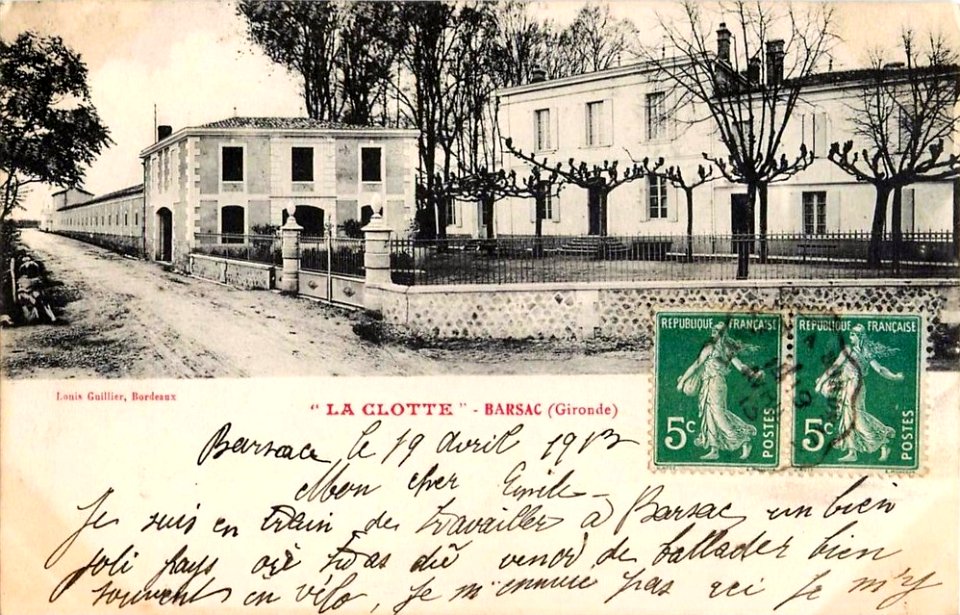 Louis Guillier, Bordeaux
"LA CLOTTE" - BARSAC (Gironde)
REPUBLIQUE FRANÇAISE
5c POSTES
REPUBLIQUE FRANÇAISE
5c POSTES
Barsac le 19 avril 1913
Mon cher Emile
Je suis en train de travailler à Barsac un bien
joli pays où tu as dû venir de ballader bien
souvent en vélo, Je m'ennuie pas ici Je m'y